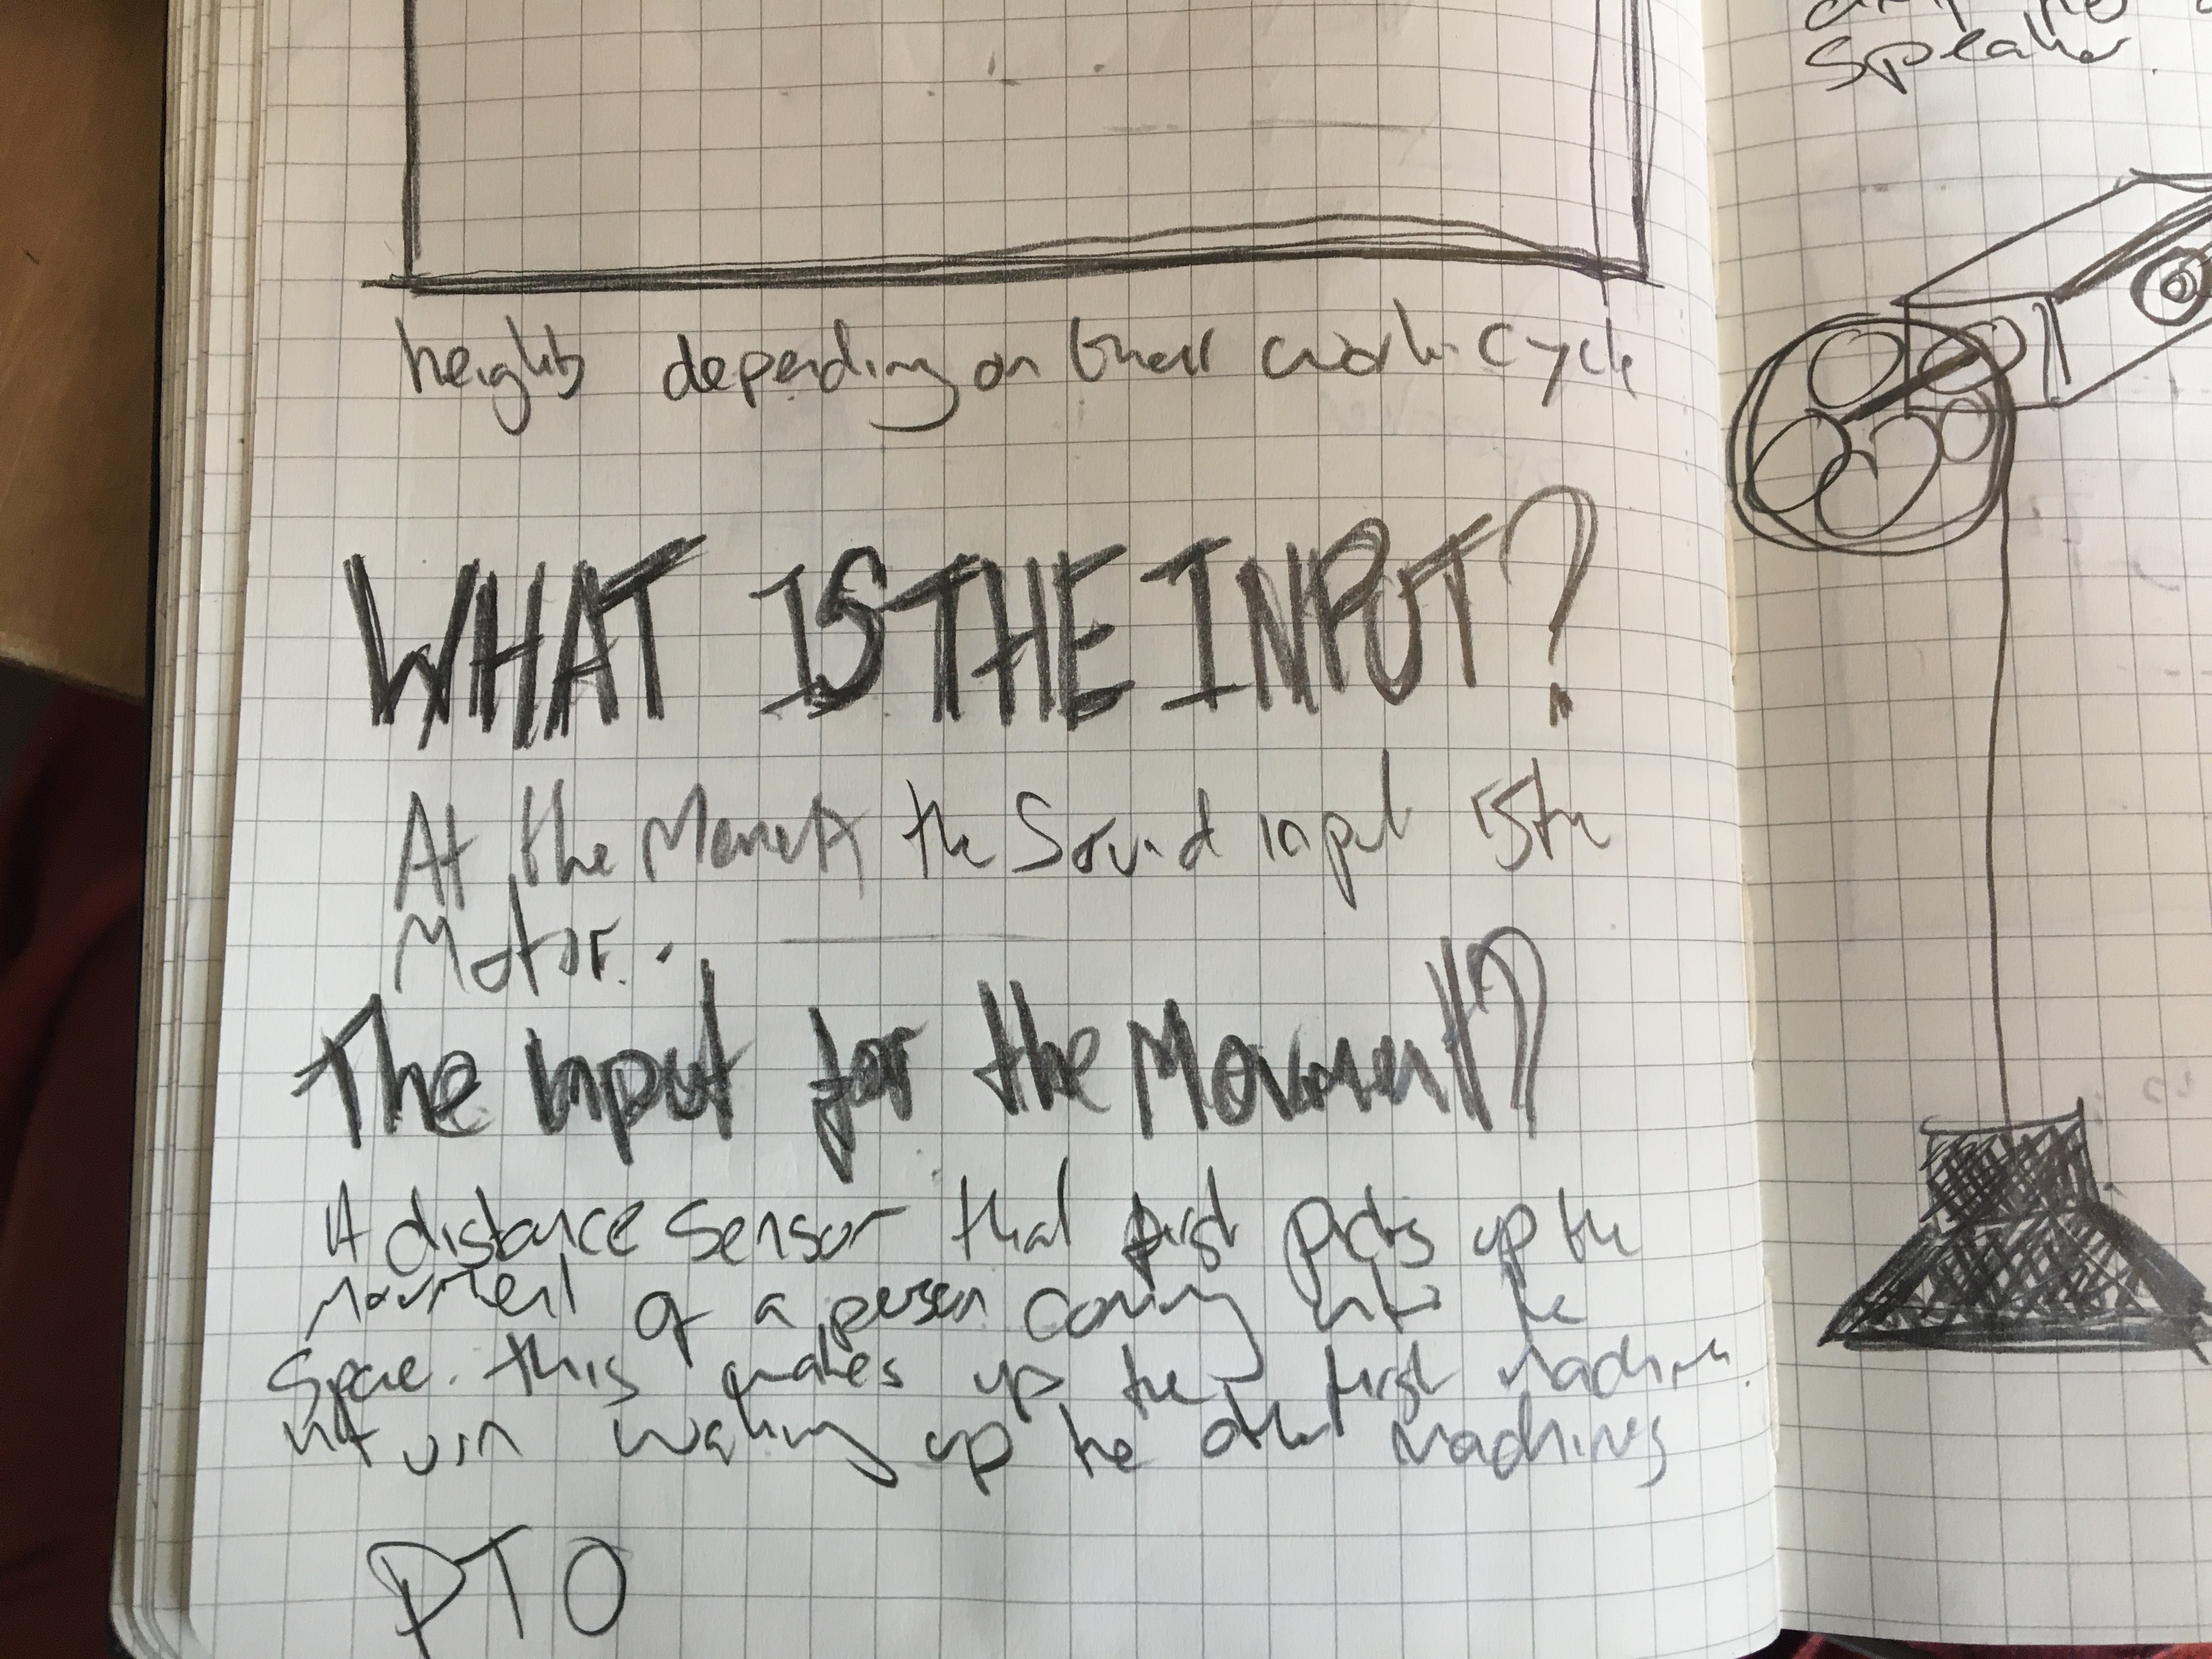 heights depending on their circadian cycle
WHAT IS THE INPUT?
At the Moment the Sound input is the
Motor.
The input for the Movement?
A distance sensor that first picks up the
Movement of a person coming into the
Space. this makes up the first reading
up the
PTO
Speaker